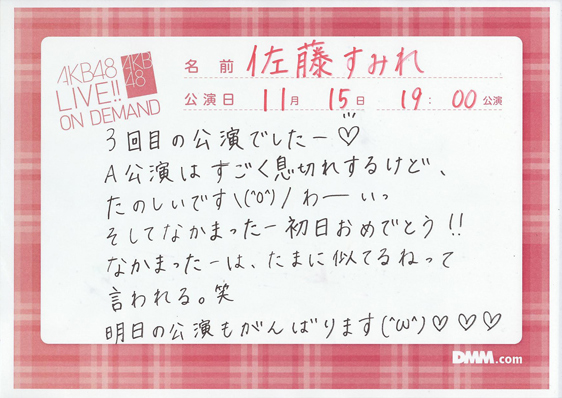 AKB48
LIVE!!
ON DEMAND
AKB
48
名前 佐藤すみれ
公演日 11月 15日 19:00公演
3回目の公演でしたー♡
A公演はすごく息切れするけど、
たのしいです\(^o^)/わーいっ
そしてなかまったー初日おめでとう!!
なかまったーは、たまに似てるねって
言われる。笑
明日の公演もがんばります(^ω^)♡♡♡
DMM.com